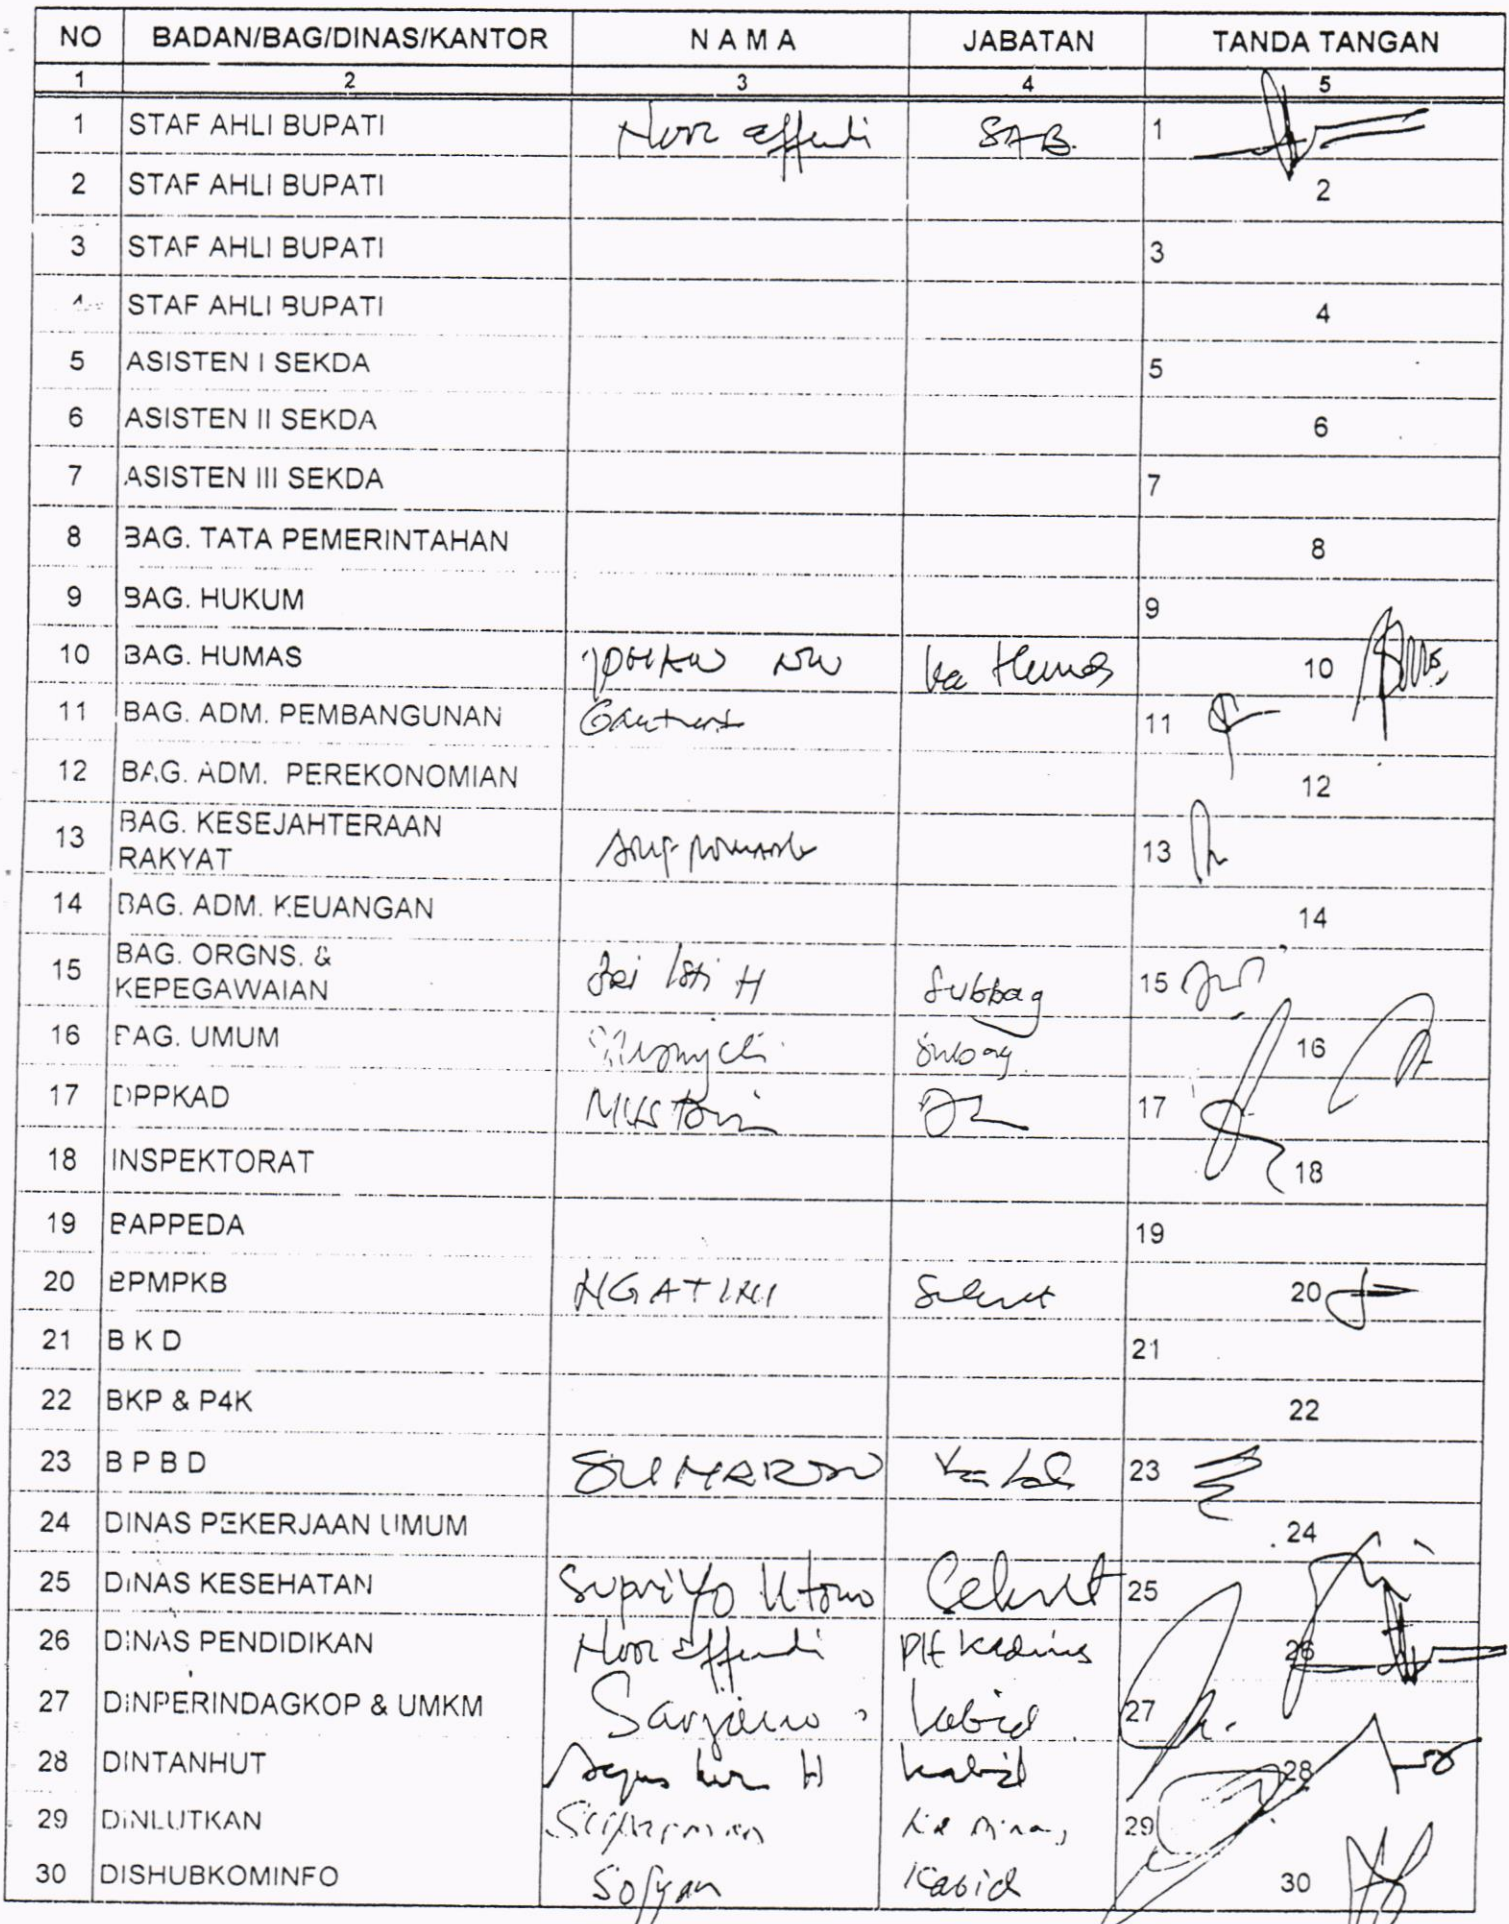 NO BADAN/BAG/DINAS/KANTOR N A M A JABATAN TANDA TANGAN
1 2 3 4 5
1 STAF AHLI BUPATI Noor Effendi SAB. 1
2 STAF AHLI BUPATI 2
3 STAF AHLI BUPATI 3
4 STAF AHLI BUPATI 4
5 ASISTEN I SEKDA 5
6 ASISTEN II SEKDA 6
7 ASISTEN III SEKDA 7
8 BAG. TATA PEMERINTAHAN 8
9 BAG. HUKUM 9
10 BAG. HUMAS Ka Humas 10
11 BAG. ADM. PEMBANGUNAN 11
12 BAG. ADM. PEREKONOMIAN 12
13 BAG. KESEJAHTERAAN
RAKYAT 13
14 BAG. ADM. KEUANGAN 14
15 BAG. ORGNS. &
KEPEGAWAIAN Sri Isti H Subbag 15
16 BAG. UMUM Subag 16
17 DPPKAD 17
18 INSPEKTORAT 18
19 BAPPEDA 19
20 BPMPKB NGATINI 20
21 B K D 21
22 BKP & P4K 22
23 B P B D 23
24 DINAS PEKERJAAN UMUM 24
25 DINAS KESEHATAN Supriyo Utomo Sekret 25
26 DINAS PENDIDIKAN Noor Effendi Plt Kadinas 26
27 DINPERINDAGKOP & UMKM Sarjono Kabid 27
28 DINTANHUT Agus H Kabid 28
29 DINLUTKAN Suparman Ka Dinas 29
30 DISHUBKOMINFO Sofyan Kabid 30